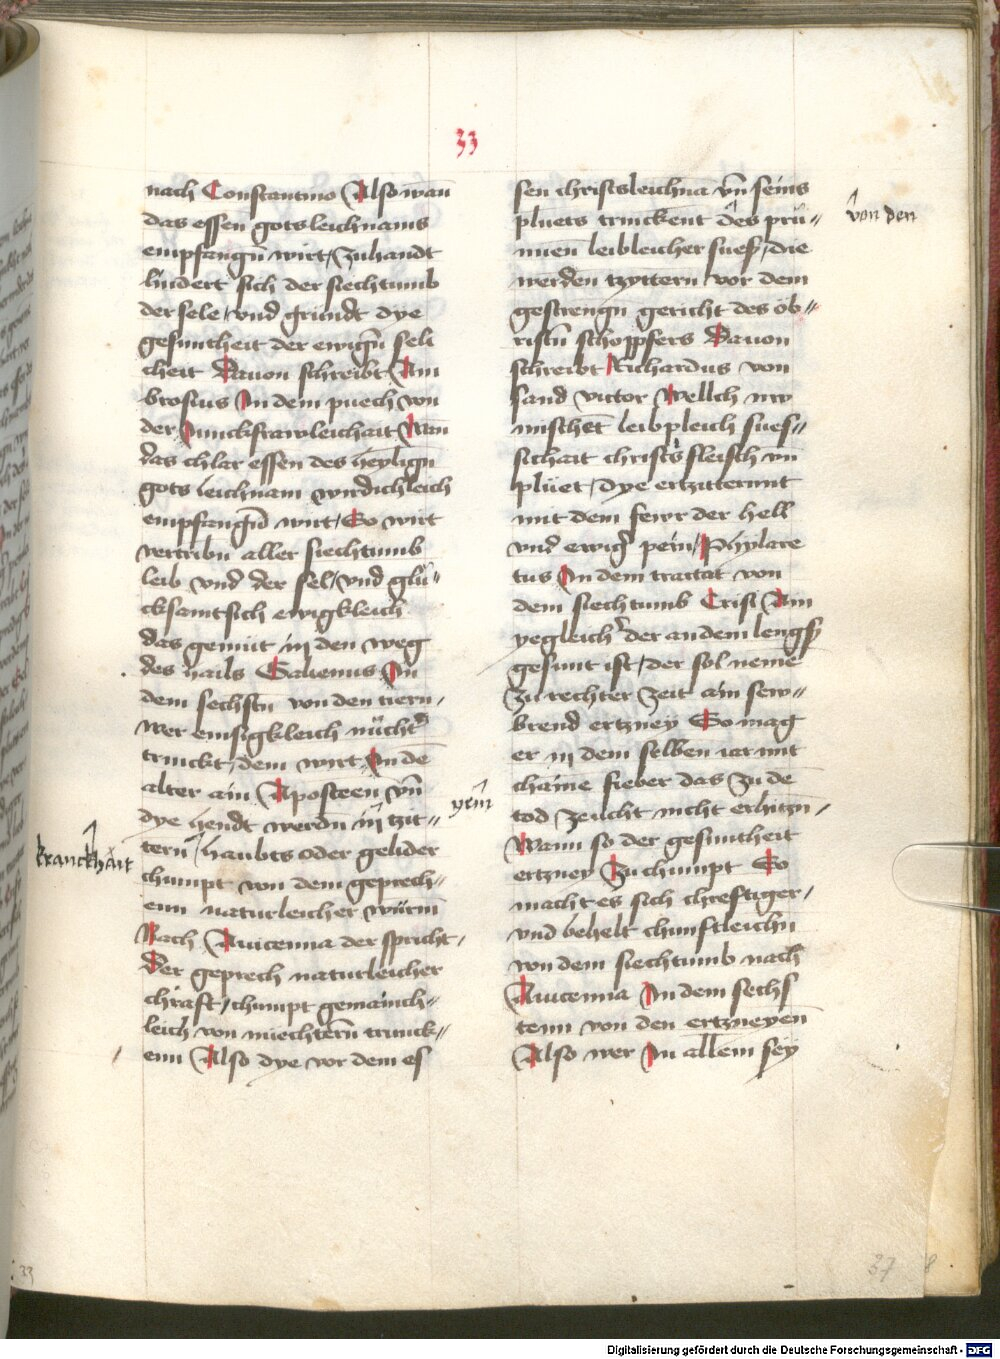 33
nach Constantino Also wan̄
das essen gotsleichnams
empfangn̄ wirt / zuhandt
lindert sich der siechtumb
der sele / vnd gründt dye
gesuntheit der ewign̄ seli
cheit Dauon schreibt Am
brosius In dem puech von
der Junckfrawleichait Wan̄
das chlar essen des heylign̄
gots leichnam wirdichleich
empfangn̄ wirt / So wirt
vertribn aller siechtumb
leib vnd der sel / vnd glü〃
cksamt sich ewigkleich
das gemüt in den weg
des hails Galienus In
dem sechstn̄ von den tiern /
wer emsigkleich nücht
trinckt / dem wirt In dē
alter ain Aposteen vn̄
dye hendt werdn̄ im tzit〃
tern / haubts oder gelider
chumpt von dem geprech〃
enn naturleicher würm
Nach Auicenna der spricht /
Der geprech naturleicher
chraft / chumpt gemainch〃
leich von niechterm̄ trinck〃
enn Also dye vor dem es
kranckhait
yem̄
sen christsleichna vn̄ seins
pluets trinckent des prü〃
nnen leibleicher sues / die
werden tzyttern vor dem
gestrengn̄ gericht des öb〃
ristn̄ schöppfers Dauon
schreibt Richardus von
sand victor Wellch nw
mischēt leibpleich sues〃
sichait christs fleisch vn̄
plüet / dye ertzitternnt
mit dem fewr der hell
vnd ewig pein / Phylare
tus In dem tractat von
dem siechtumb Crisi Am
yegleich der an dem lengs
gesunt ist / der sol neme
zu rechter zeit ain sew〃
brend ertzney So mag
er in dem selben iar mit
chaine fieber das zu dē
tod zeucht nicht erhitzn /
Wann so der gesuntheit
ertzney Zuchumpt So
macht es sich chreftiger /
vnd behelt chunftleichn
von dem siechtumb nach
Auicenna In dem sechs
tenn von den ertzneyen̄
Also wer In allem sey
von den
33
37
8
Digitalisierung gefördert durch die Deutsche Forschungsgemeinschaft - DFG